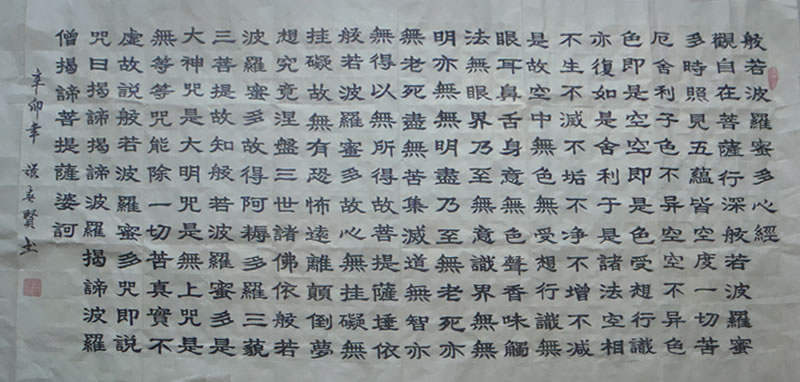 般若波羅蜜多心經
觀自在菩薩行深般若波羅蜜
多時照見五蘊皆空度一切苦
厄舍利子色不異空空不異色
色即是空空即是色受想行識
亦復如是舍利子是諸法空相
不生不滅不垢不净不增不减
是故空中無色無受想行識無
眼耳鼻舌身意無色聲香味觸
法無眼界乃至無意識界無無
明亦無無明盡乃至無老死亦
無老死盡無苦集滅道無智亦
無得以無所得故菩提薩埵依
般若波羅蜜多故心無挂礙無
挂礙故無有恐怖遠離顛倒夢
想究竟涅盤三世諸佛依般若
波羅蜜多故得阿耨多羅三藐
三菩提故知般若波羅蜜多是
大神咒是大明咒是無上咒是
無等等咒能除一切苦真實不
虛故說般若波羅蜜多咒即說
咒曰揭諦揭諦波羅揭諦波羅
僧揭諦菩提薩婆訶
辛卯年 春賢书